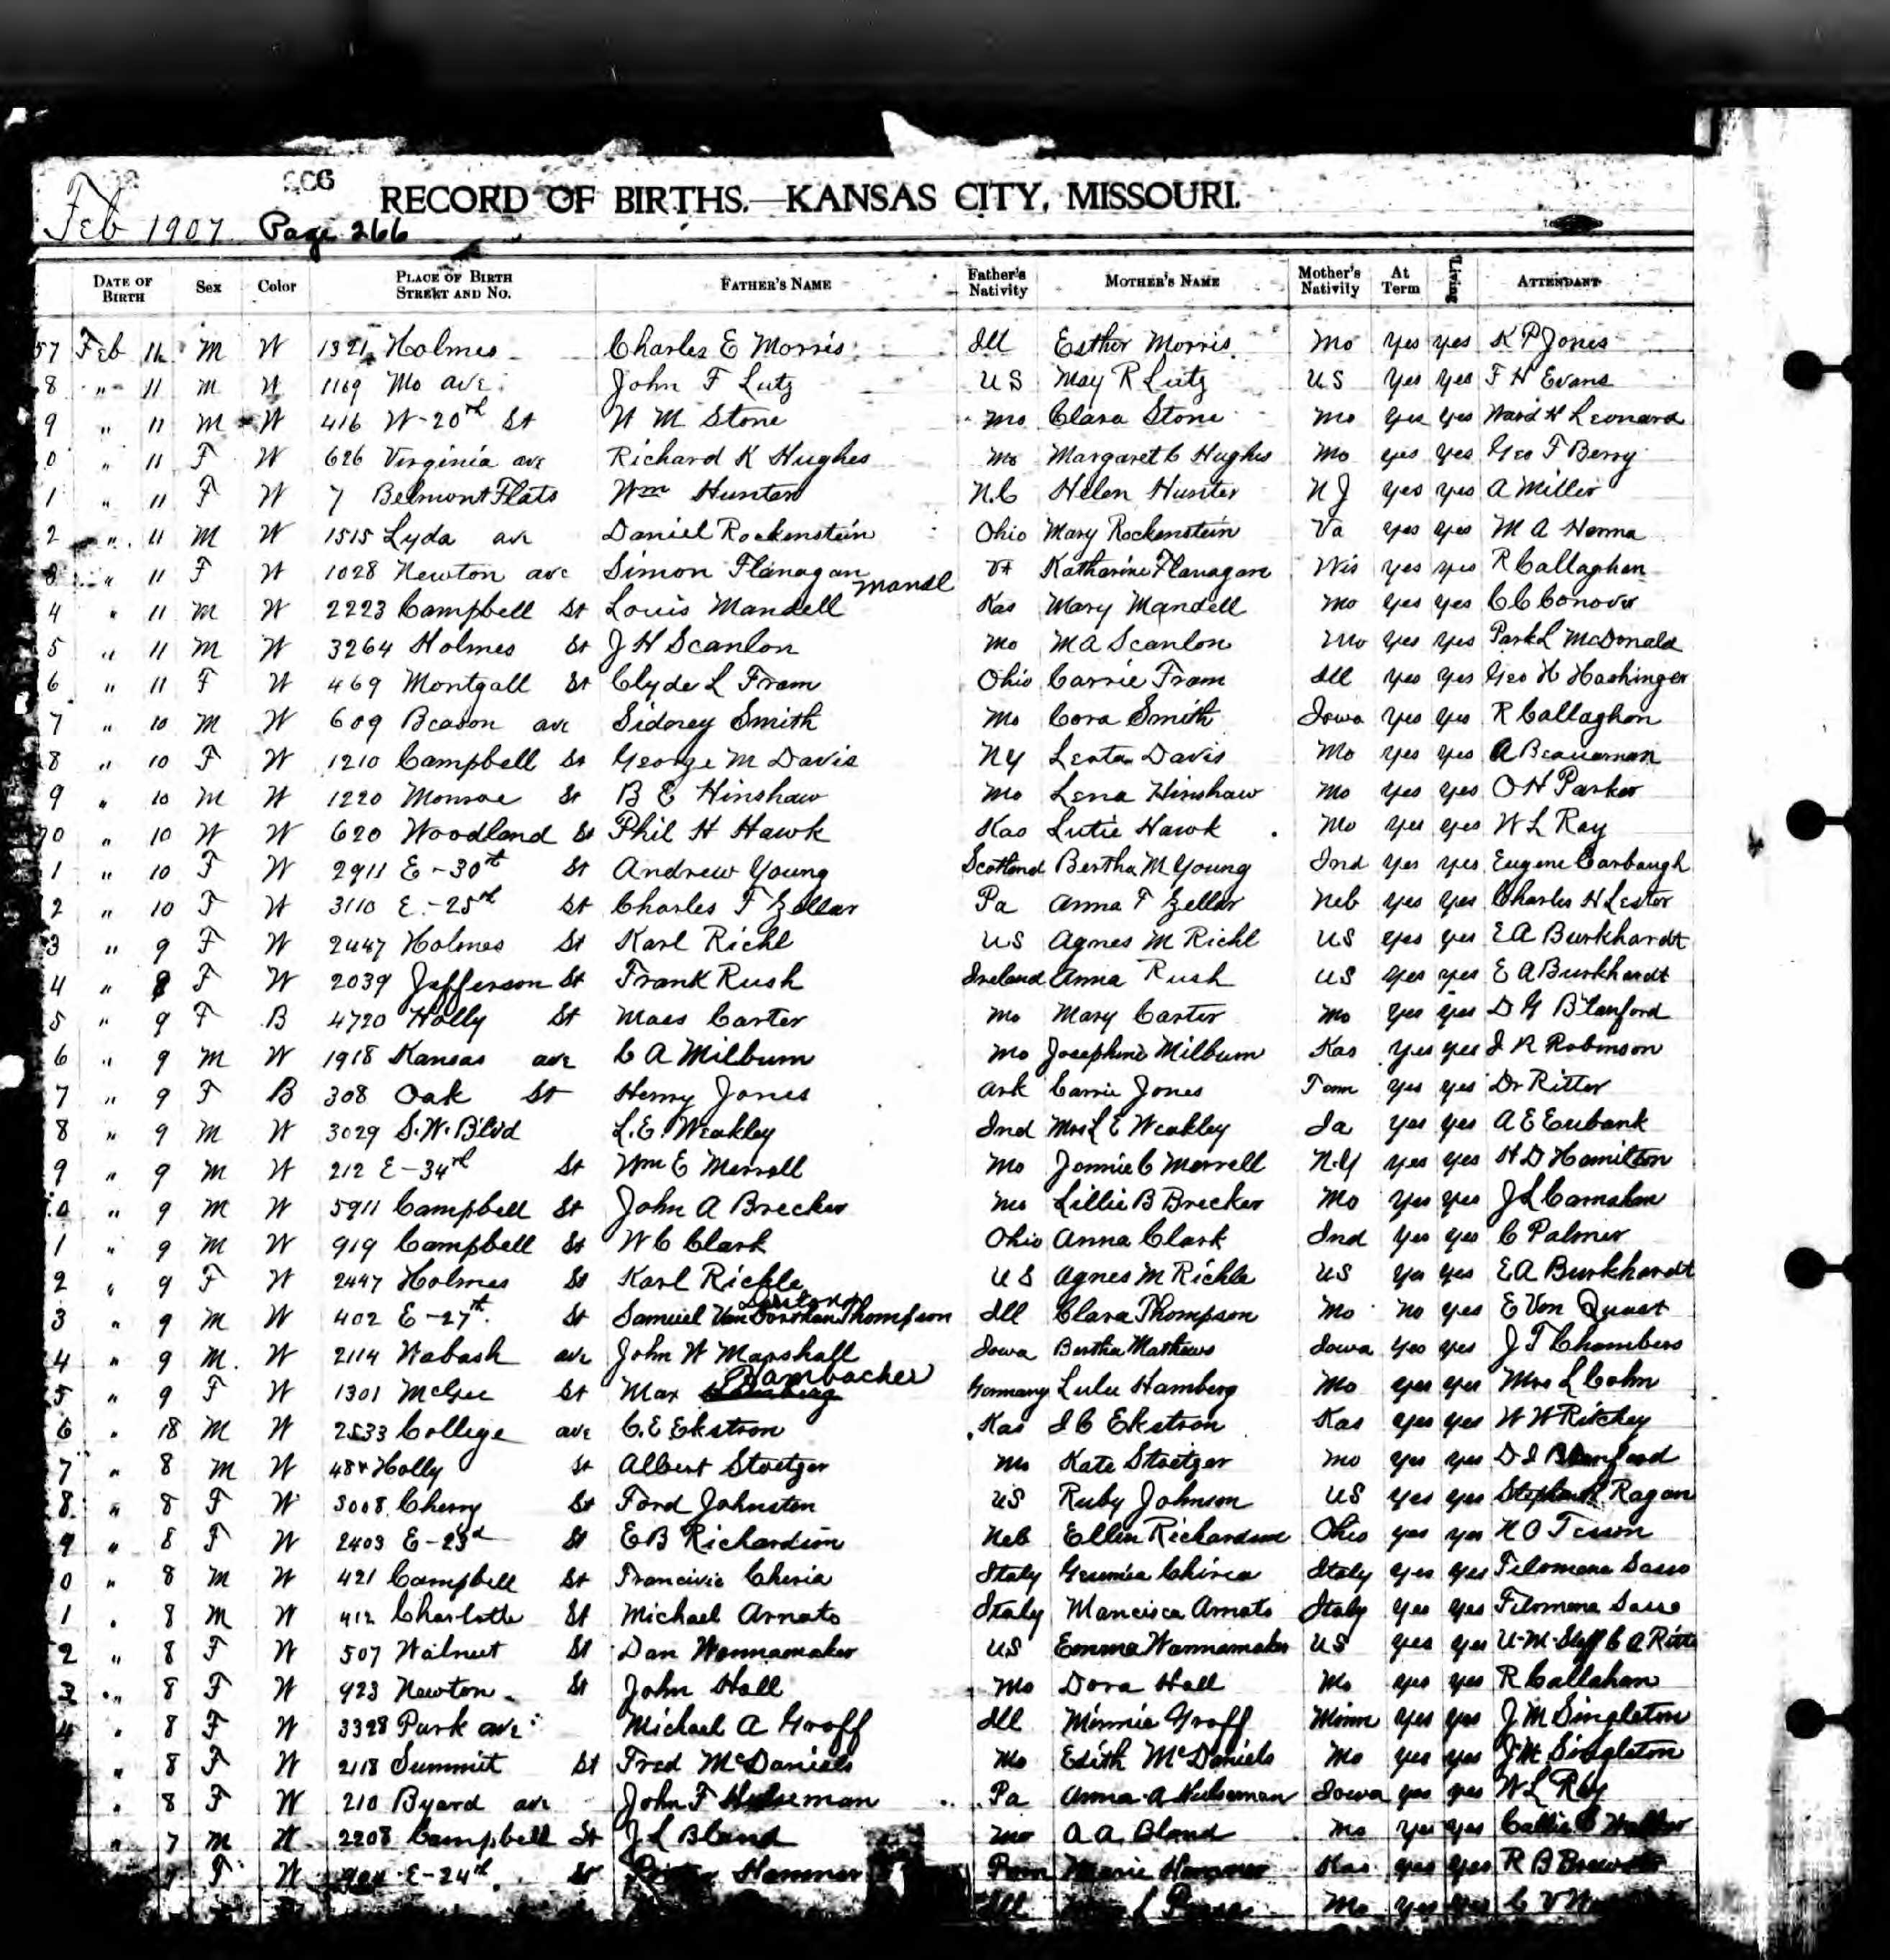 Feb 1907 Page 266
RECORD OF BIRTHS.—KANSAS CITY, MISSOURI.
DATE OF BIRTH Sex Color PLACE OF BIRTH STREET AND NO. FATHER'S NAME Father's Nativity MOTHER'S NAME Mother's Nativity At Term Living ATTENDANT
57 Feb 11 M W 1321 Holmes Charles E Morris Ill Esther Morris Mo yes yes K P Jones
8 " 11 M W 1169 Mo ave. John F Lutz US May R Lutz US yes yes F H Evans
9 " 11 M W 416 W-20th St W M Stone Mo Clara Stone Mo yes yes Ward H Leonard
0 " 11 F W 626 Virginia ave Richard K Hughes Mo Margaret C Hughes Mo yes yes Geo F Berry
1 " 11 F W 7 Belmont Flats Wm Hunter N.C Helen Hunter N J yes yes A Miller
2 " 11 M W 1515 Lyda ave Daniel Rockenstein Ohio Mary Rockenstein Va yes yes M A Hanna
3 " 11 F W 1028 Newton ave Simon Flanagan Katharine Flanagan Wis yes yes R Callaghan
Mandl
4 " 11 M W 2223 Campbell St Louis Mandell Kas Mary Mandell Mo yes yes C C Conover
5 " 11 M W 3264 Holmes St J H Scanlon Mo M A Scanlon Mo yes yes Park L McDonald
6 " 11 F W 469 Montgall St Clyde L Fram Ohio Carrie Fram Ill yes yes Geo H Hashinger
7 " 10 M W 609 Beacon ave Sidney Smith Mo Cora Smith Iowa yes yes R Callaghan
8 " 10 F W 1210 Campbell St George M Davis NY Leota Davis Mo yes yes A
9 " 10 M W 1220 Monroe St B E Hinshaw Mo Lena Hinshaw Mo yes yes O H Parker
70 " 10 W W 620 Woodland St Phil H Hawk Kas Lutie Hawk Mo yes yes W L Ray
1 " 10 F W 2911 E-30th St Andrew Young Scotland Bertha M Young Ind yes yes Eugene Carbaugh
2 " 10 F W 3110 E.-25th St Charles F Zellar Pa Anna F Zellar Neb yes yes Charles H Lester
3 " 9 F W 2447 Holmes St Karl Richl US Agnes M Richl US yes yes E A Burkhardt
4 " F W 2039 Jefferson St Frank Rush Ireland Anna Rush US yes yes E A Burkhardt
5 " 9 F B 4720 Holly St Maes Carter Mo Mary Carter Mo yes yes D G Blanford
6 " 9 M W 1918 Kansas ave C A Milburn Mo Josephine Milburn Kas yes yes J R Robinson
7 " 9 F B 308 Oak St Henry Jones Ark Carrie Jones Tenn yes yes Dr Ritter
8 " 9 M W 3029 S.W. Blvd L.E. Weakley Ind Mrs L E Weakley Ia yes yes A E Eubank
9 " 9 M W 212 E-34rd St Wm E Merrell Mo Jennie C Merrell N.Y yes yes H D Hamilton
0 " 9 M W 5911 Campbell St John A Brecker Mo Lillie B Brecker Mo yes yes J L Carnahan
1 " 9 M W 919 Campbell St W C Clark Ohio Anna Clark Ind yes yes C Palmer
2 " 9 F W 2447 Holmes St Karl Richle US Agnes M Richle US yes yes E A Burkhardt
3 " 9 M W 402 E-27th St Samuel Van Thompson Ill Clara Thompson Mo no yes E Von Quast
4 " 9 M. W 2114 Wabash ave John W Marshall Iowa Bertha Mathews Iowa yes yes J T Chambers
Bambacher
5 " 9 F W 1301 McGee St Max Germany Lulu Hamberg Mo yes yes Mrs L Cohn
6 " 18 M W 2533 College ave C.E Ekstron Kas I C Ekstron Kas yes yes W W Ritchey
7 " 8 M W Holly St Albert Stoetzer Mo Kate Stoetzer Mo yes yes D I Blanford
8 " 8 F W 3008 Cherry St Ford Johnston US Ruby Johnson US yes yes Ragan
9 " 8 F W 2403 E-23d St E B Richardson Neb Ellen Richardson Ohio yes yes
0 " 8 M W 421 Campbell St Italy Italy yes yes Filomena Sasso
1 " 8 M W 412 Charlotte St Michael Amato Italy Mancisca Amato Italy yes yes Filomena Sasso
2 " 8 F W 507 Walnut St Dan Wannamaker US Emma Wannamaker US yes yes U-M-Staff C A Ritte
3 " 8 F W 923 Newton St John Hall Mo Dora Hall Mo yes yes R Callahan
4 " 8 F W 3328 Park ave Michael A Groff Ill Minnie Groff Minn yes yes J M Singleton
" 8 F W 2118 Summit St Fred McDaniels Mo Edith McDaniels Mo yes yes J M Singleton
" 8 F W 210 Byard ave John F Hulseman Pa Anna A Hulseman Iowa yes yes W L Ray
" 7 M W 2208 Campbell St J L Bland Mo A A Bland Mo yes yes Callie C Walker
F W E-24th St Hammer Marie Hammer Kas yes yes R B Brewster
Ill Mo yes yes C V